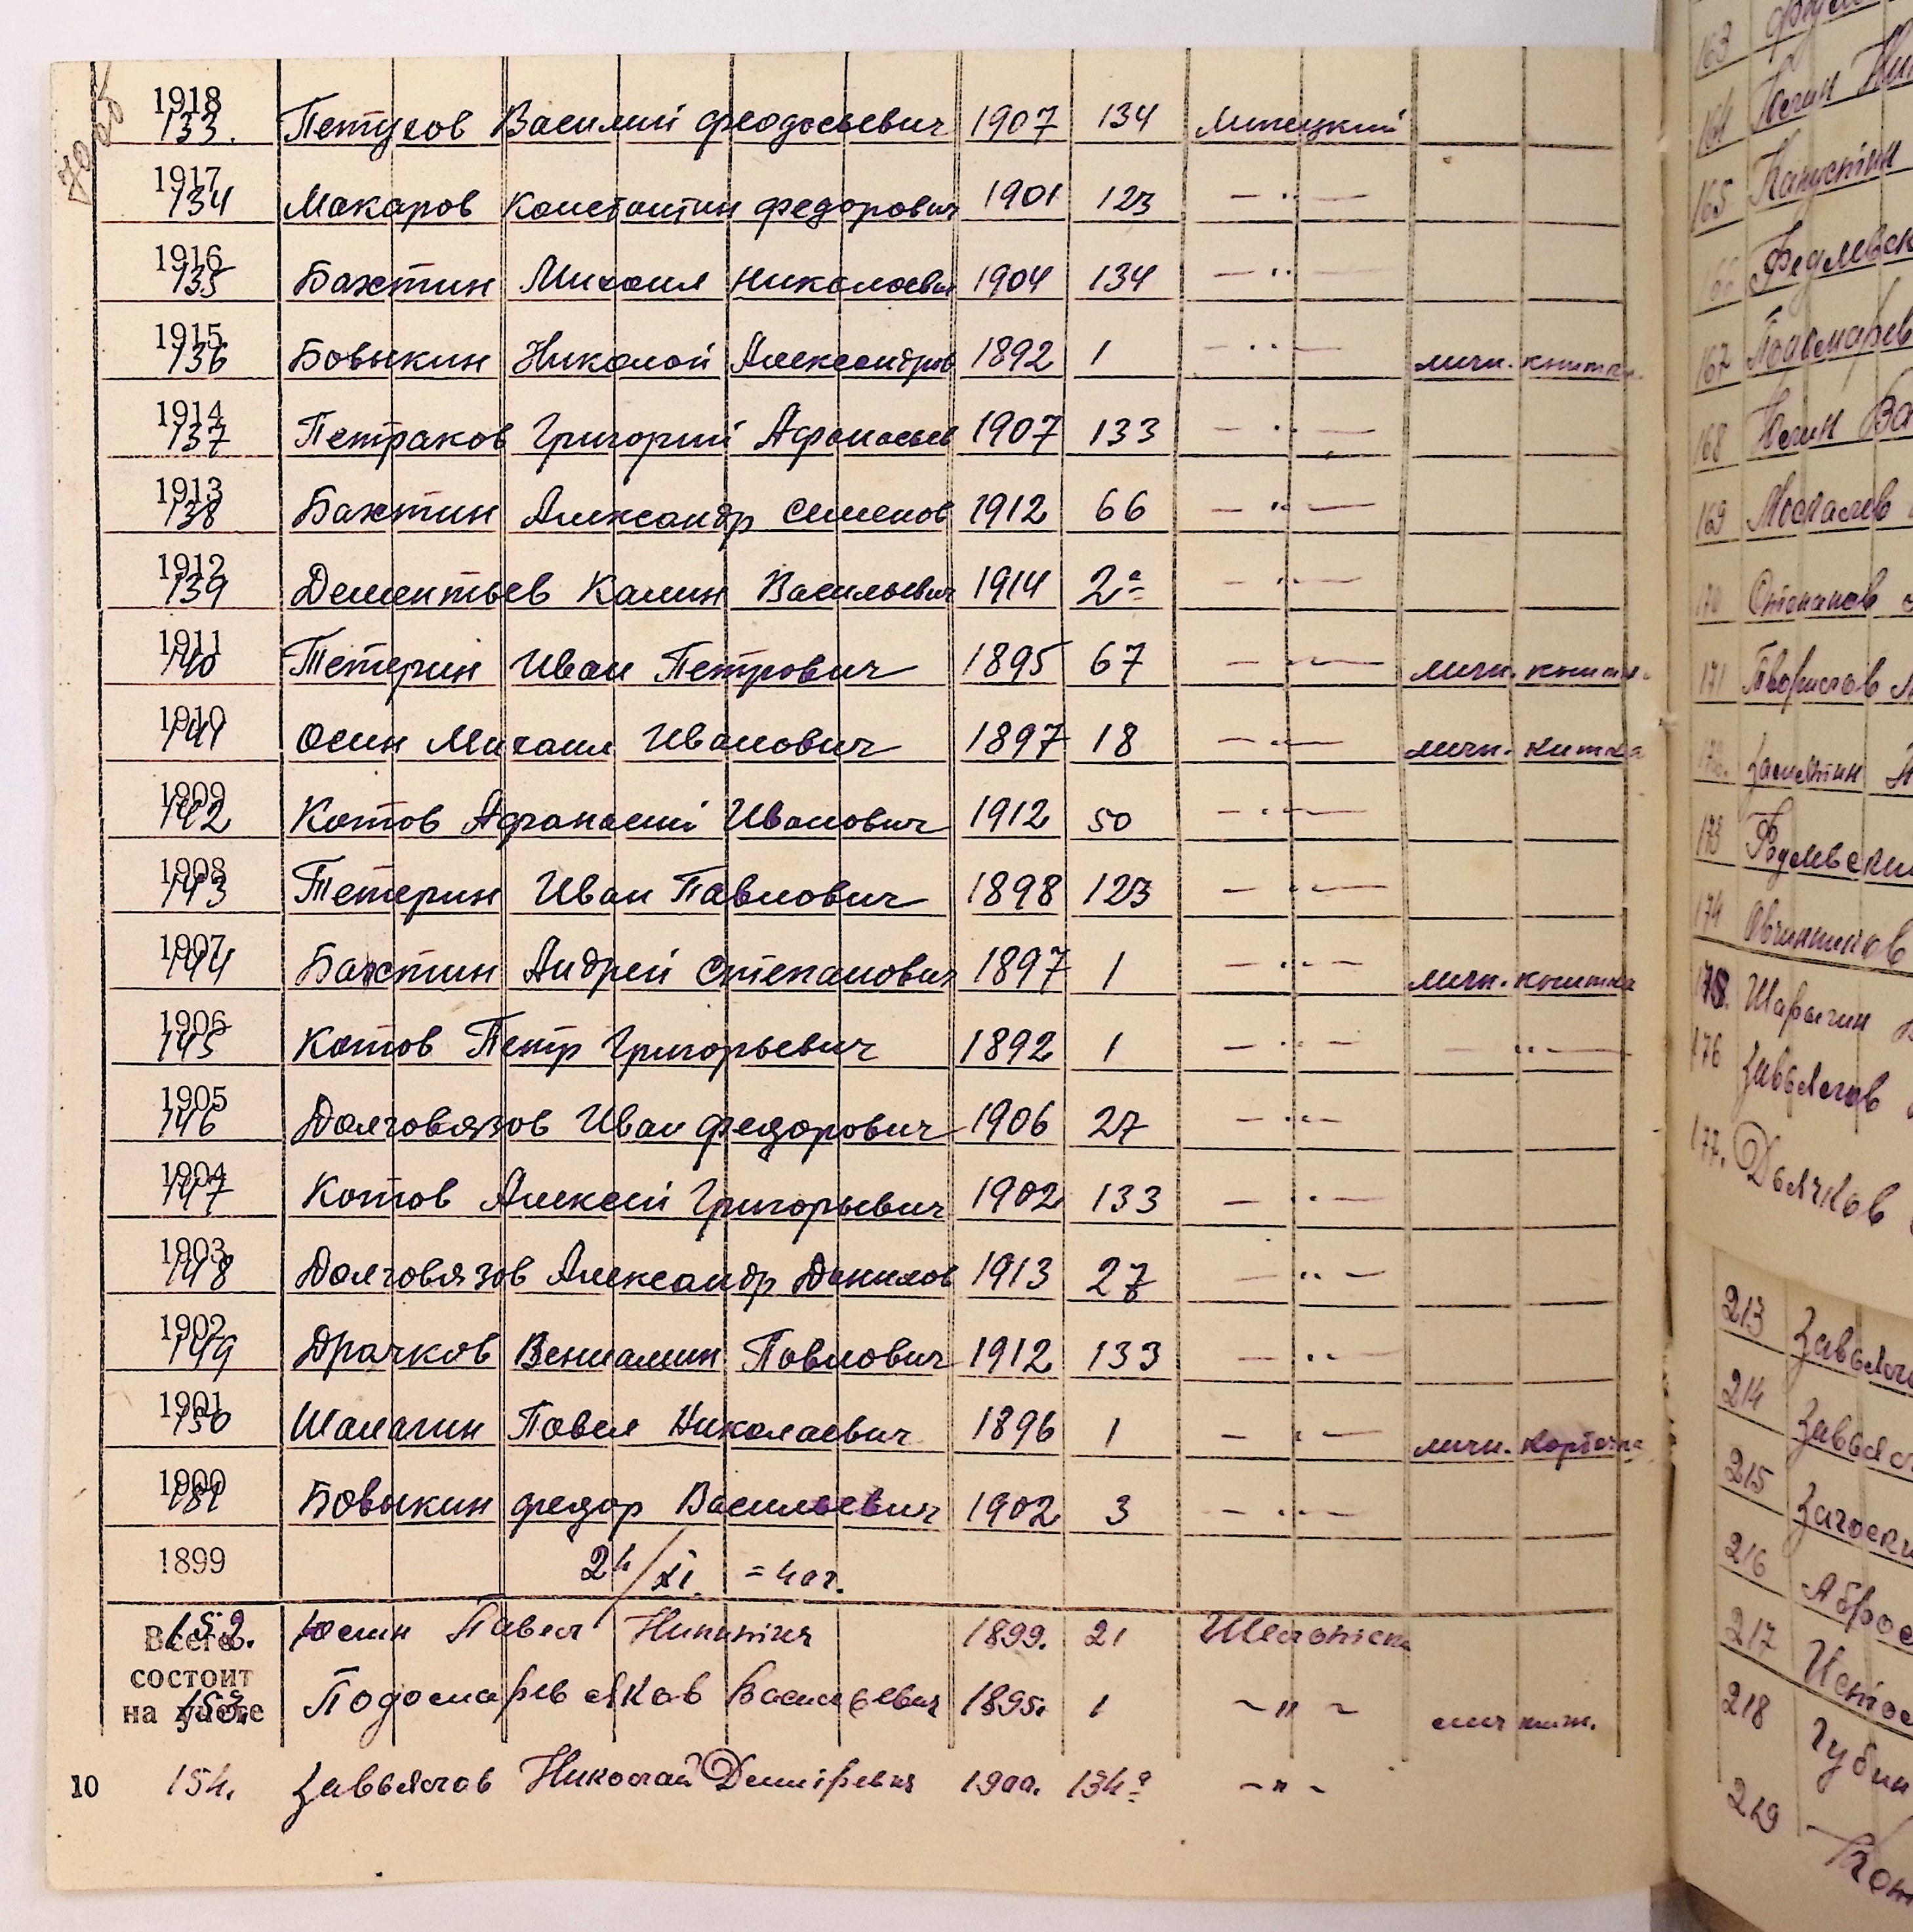 1918 133. Петухов Василий Феодосьевич 1907 134 Липецкий
1917 134 Макаров Константин Федорович 1901 123 — " —
1916 135 Бахтин Михаил Николаевич 1904 134 — " —
1915 136 Бовыкин Николай Александров 1892 1 — " — личн. книжка
1914 137 Петраков Григорий Афанасьев 1907 133 — " —
1913 138 Бахтин Александр Семенов 1912 66 — " —
1912 139 Дементьев Калин Васильевич 1914 2а — " —
1911 140 Тетерин Иван Петрович 1895 67 — " — личн. книжк.
1910 141 Осин Михаил Иванович 1897 18 — " — личн. книжка
1909 142 Котов Афанасий Иванович 1912 50 — " —
1908 143 Тетерин Иван Павлович 1898 123 — " —
1907 144 Бахтин Андрей Степанович 1897 1 — " — личн. книжка
1906 145 Котов Петр Григорьевич 1892 1 — " — — " —
1905 146 Долговязов Иван Федорович 1906 27 — " —
1904 147 Котов Алексей Григорьевич 1902 133 — " —
1903 148 Долговязов Александр Данилов 1913 27 — " —
1902 149 Драчков Вениамин Павлович 1912 133 — " —
1901 150 Шалагин Павел Николаевич 1896 1 — " — личн. карточка
1900 151 Бовыкин Федор Васильевич 1902 3 — " —
1899 24/XI. = 40 г.
Всего 152. Юсин Павел Никитич 1899. 21
состоит
на учете 153. Яков Васильевич 1895. 1 — " — лич книж.
10 154. Завьялов Николай Дмитревич 1900. 134а — " —
163
164 Юсин
165 Капустин
166
167
168 Юсин
169 Москалев
170 Степанов
171
172. Замятин
173
174 Овчинников
175. Шарыгин
176 Завьялов
177. Дьячков
213
214
215
216
217
218 Губин
219